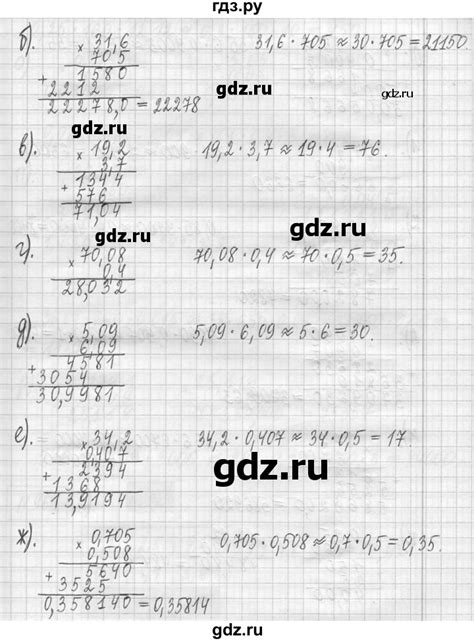 гдз.ру
б). × 31,6    31,6 · 705 ≈ 30 · 705 = 21150.
705
+ 1580
2212
22278,0 = 22278
gdz.ru
gdz.ru
в). × 19,2    19,2 · 3,7 ≈ 19 · 4 = 76.
3,7
+ 1344
576
71,04
gdz.ru
gdz.ru
г). × 70,08    70,08 · 0,4 ≈ 70 · 0,5 = 35.
0,4
28,032
gdz.ru
д). × 5,09    5,09 · 6,09 ≈ 5 · 6 = 30.
6,09
+ 4581
3054
30,9981
gdz.ru
е). × 34,2    34,2 · 0,407 ≈ 34 · 0,5 = 17.
0,407
+ 2394
1368
13,9194
gdz.ru
gdz.ru
ж). × 0,705    0,705 · 0,508 ≈ 0,7 · 0,5 = 0,35.
0,508
+ 5640
3525
0,358140 = 0,35814
gdz.ru